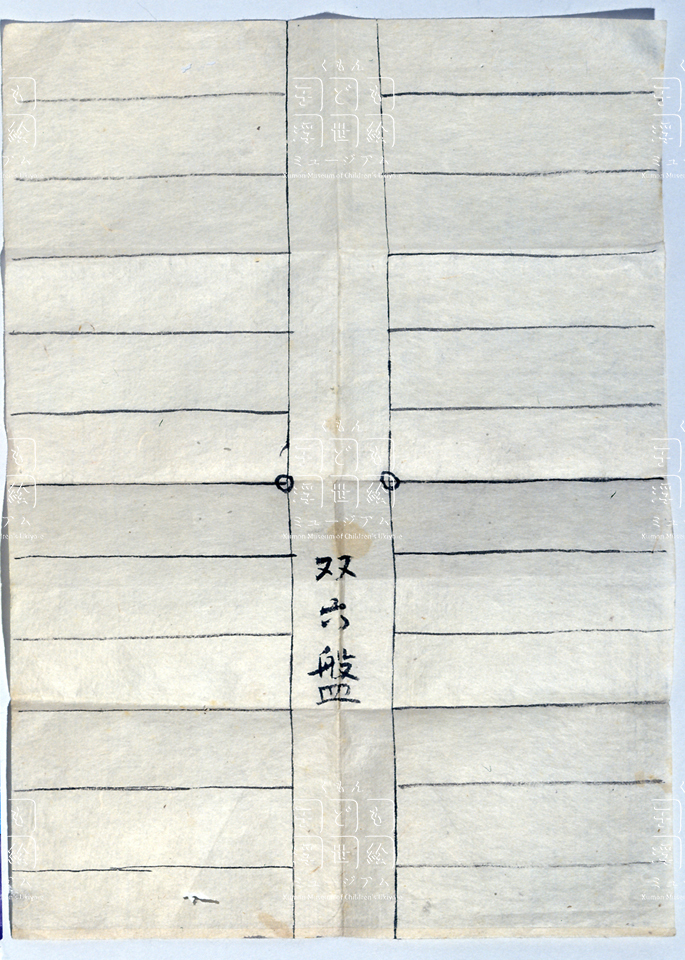 双六盤
くもん
子ども
浮世絵
ミュージアム
Kumon Museum of Children's Ukiyo-e